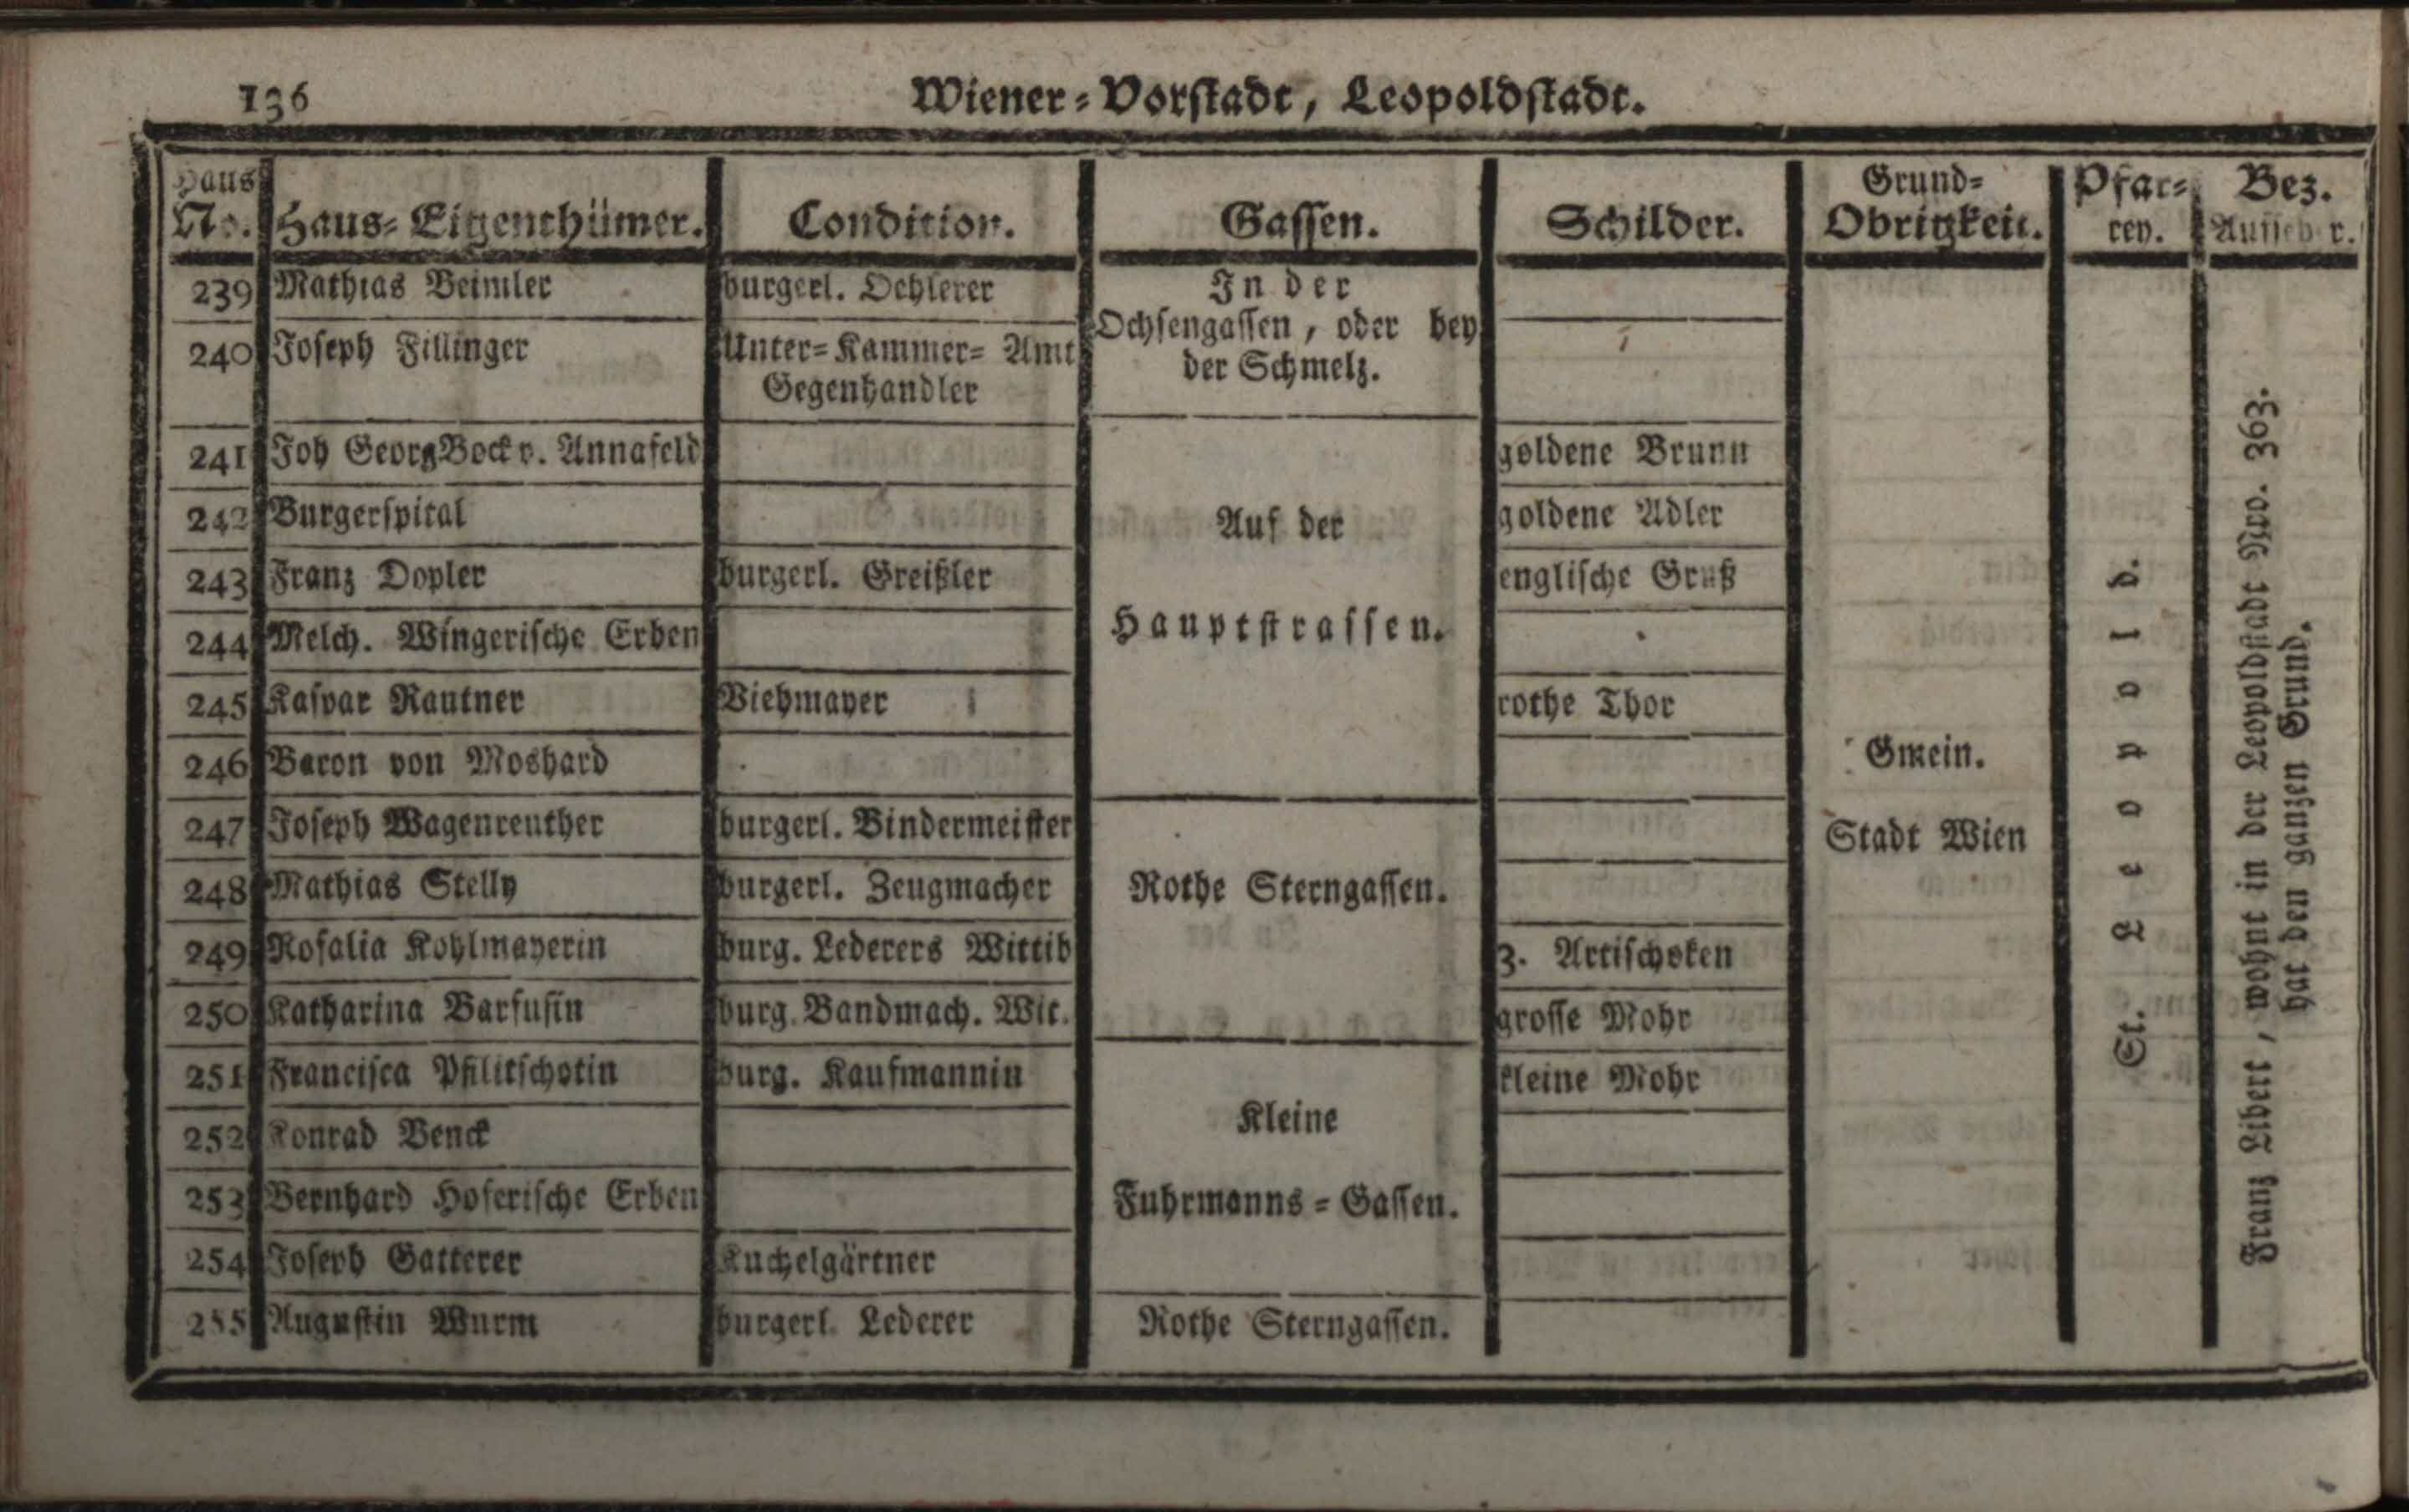 136
Wiener-Vorstadt, Leopoldstadt.
Haus No. Haus-Eigenthümer. Condition. Gassen. Schilder. Grund-Obrigkeit. Pfar-rey. Bez. Aufseher.
239 Mathias Beimler burgerl. Oehlerer
240 Joseph Fillinger Unter-Kammer-Amt
Gegenhandler
In der
Ochsengassen, oder bey
der Schmelz.
241 Joh Georg Bock v. Annafeld goldene Brunn
242 Burgerspital goldene Adler
243 Franz Dopler burgerl. Greißler englische Gruß
244 Melch. Wingerische Erben
245 Kaspar Rautner Viehmayer rothe Thor
246 Baron von Moshard
Auf der
Hauptstrassen.
247 Joseph Wagenreuther burgerl. Bindermeister
248 Mathias Stelly burgerl. Zeugmacher
249 Rosalia Kohlmayerin burg. Lederers Wittib 3. Artischoken
250 Katharina Barfusin burg. Bandmach. Wit. grosse Mohr
Rothe Sterngassen.
251 Francisca Pfilitschotin burg. Kaufmannin kleine Mohr
252 Konrad Benck
253 Bernhard Hoferische Erben
254 Joseph Gatterer Kuchelgärtner
Kleine
Fuhrmanns-Gassen.
255 Augustin Wurm burgerl. Lederer Rothe Sterngassen.
Gmein.
Stadt Wien
St. Leopold.
Franz Libert, wohnt in der Leopoldstadt Nro. 363.
hat den ganzen Grund.